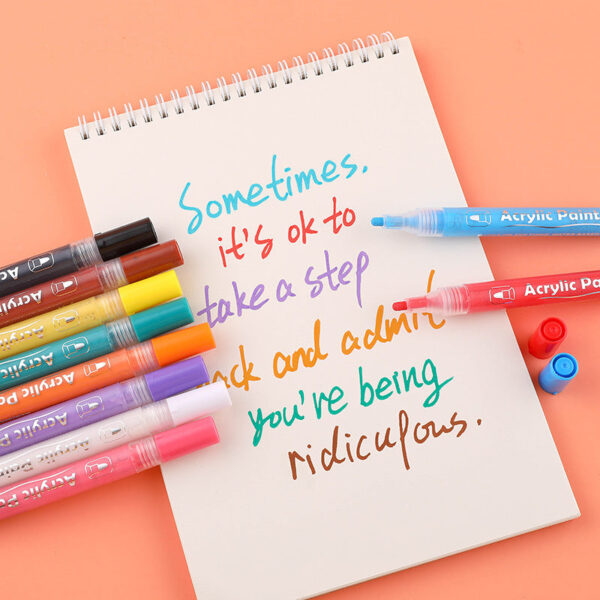 Sometimes.
it's ok to
take a step
ack and admit
you're being
ridiculous.
Acrylic Paint
Acrylic Pa
A
Acrylic
Acrylic
Acrylic
Acrylic P
Acrylic Pa
Acrylic Pa
Acrylic Pa